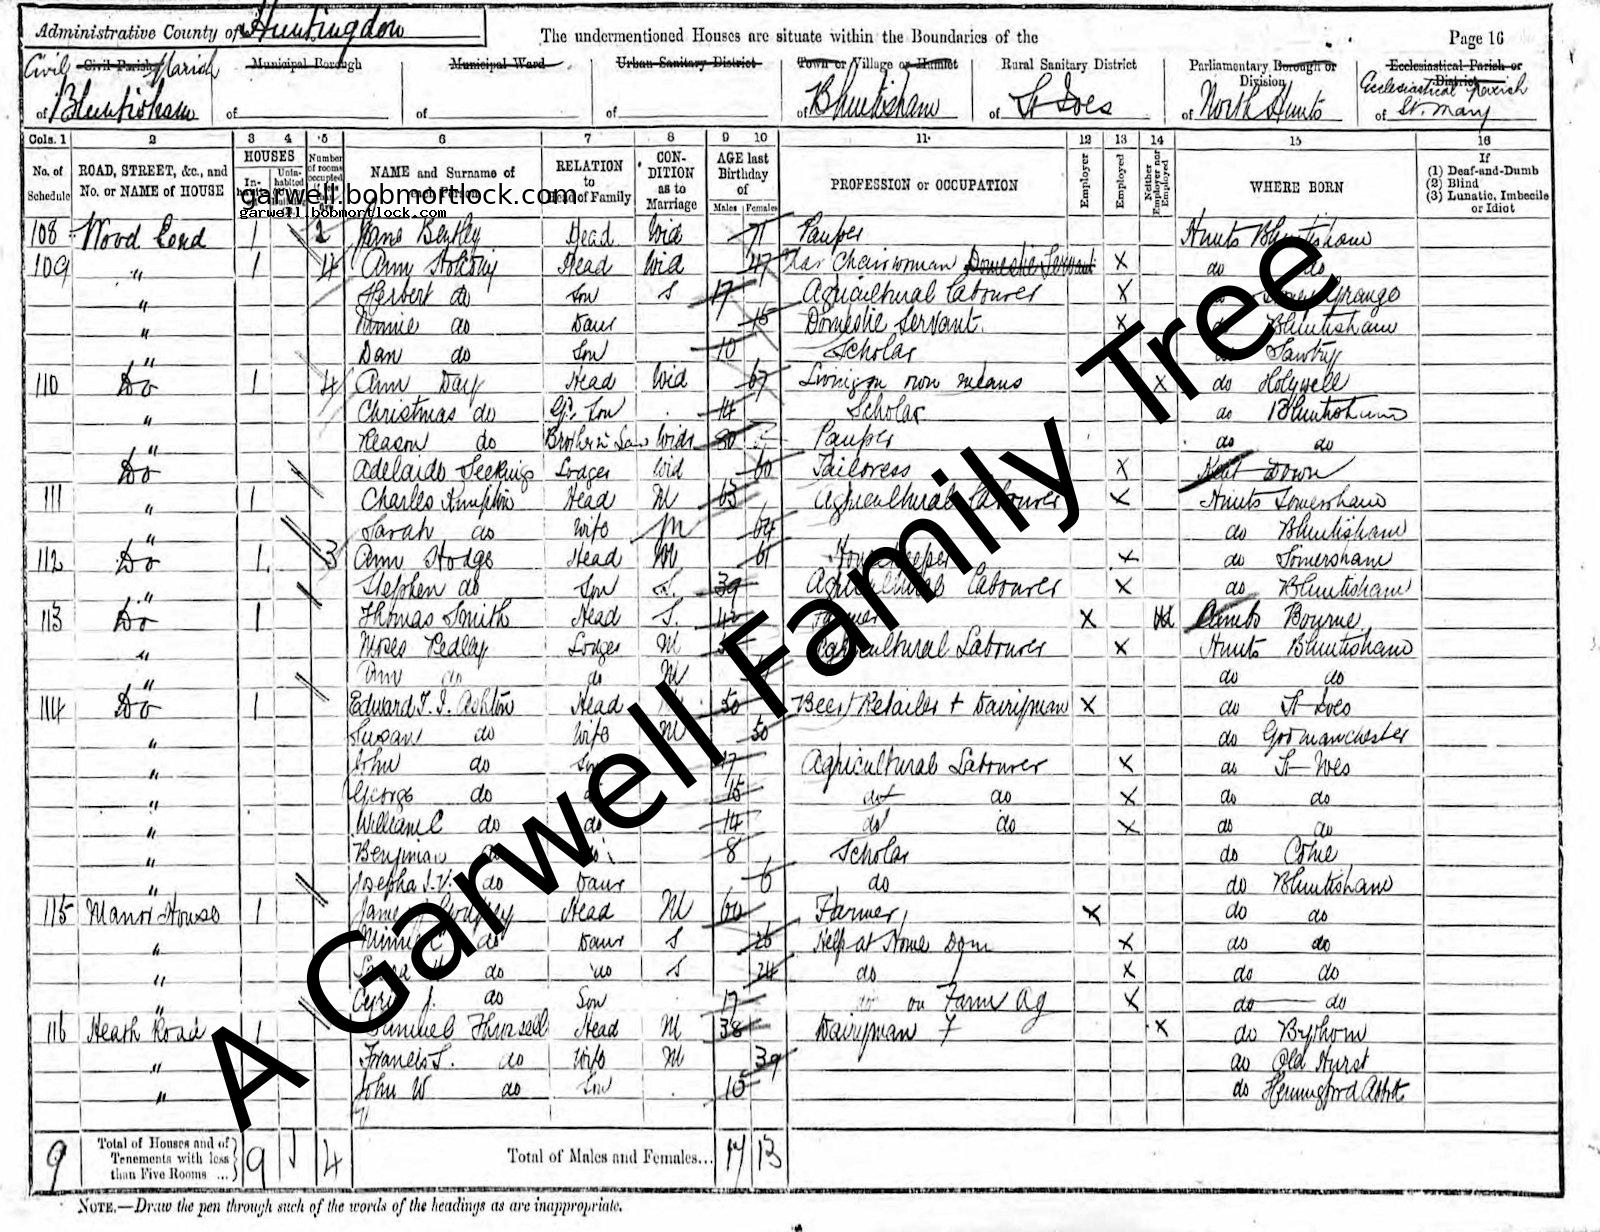 Administrative County of Huntingdon
The undermentioned Houses are situate within the Boundaries of the
Page 16
Civil Parish Municipal Borough Municipal Ward Urban Sanitary District Town or Village or Hamlet Rural Sanitary District Parliamentary Borough or Division Ecclesiastical Parish or District
Civil Parish of Bluntisham of of of of Bluntisham of St Ives of North Hunts Ecclesiastical Parish of St. Mary
Cols. 1 2 3 4 5 6 7 8 9 10 11 12 13 14 15 16
No. of Schedule ROAD, STREET, &c., and No. or NAME of HOUSE HOUSES Number of rooms occupied NAME and Surname of RELATION to Head of Family CONDITION as to Marriage AGE last Birthday of Males Females PROFESSION or OCCUPATION Employer Employed Neither Employer nor Employed WHERE BORN If (1) Deaf-and-Dumb (2) Blind (3) Lunatic, Imbecile or Idiot
garwell.bobmortlock.com
garwell.bobmortlock.com
108 Wood End 1 2 Jane Bentley Head Wid 71 Pauper Hunts Bluntisham
109 " 1 4 Head Wid 47 Domestic Servant X do do
" Herbert do Son S 17 Agricultural Labourer X do
" do Daur 15 Domestic Servant X do Bluntisham
" Dan do Son 10 Scholar do Sawtry
110 Do 1 4 Ann Day Head Wid 67 Living on own means X do Holywell
" Christmas do Gr. Son 14 Scholar do Bluntisham
" Reason do Brother in Law Widr 80 Pauper do do
Do Adelaide Seekings Lodger Wid 60 Tailoress X Kent Down
111 " 1 Charles Head M 63 Agricultural Labourer X Hunts Somersham
" Sarah do Wife M 64 do Bluntisham
112 Do 1 3 Ann Hodge Head 61 Housekeeper X do Somersham
" Stephen do Son S. 39 Agricultural Labourer X do Bluntisham
113 Do 1 Thomas Smith Head S. 42 Farmer X Cambs Bourne
" Moses Pedley Lodger M Agricultural Labourer X Hunts Bluntisham
" Ann do do M do do
114 Do 1 Edward T. J. Ashton Head 50 Beer Retailer + Dairyman X do St Ives
" Susan do Wife M 50 do Godmanchester
" John do Son 17 Agricultural Labourer X do St Ives
" George do 15 do do X do do
" William C do do 14 do do X do do
" Benjiman do do 8 Scholar do Colne
" do Daur 6 do do Bluntisham
115 Manor House 1 Head M 60 Farmer X do do
" Minnie do Daur S 26 Help at Home Dom X do do
" do do S 24 do X do do
" J. do Son 17 do on Farm Ag X do do
116 Heath Road 1 Samuel Head M 38 Dairyman X do Bythorn
" Frances S. do Wife M 39 do Old Hurst
" John W do Son 15 do Hemingford Abbots
9 Total of Houses and of Tenements with less than Five Rooms ... 9 4 Total of Males and Females... 17 13
NOTE.—Draw the pen through such of the words of the headings as are inappropriate.
A Garwell Family Tree